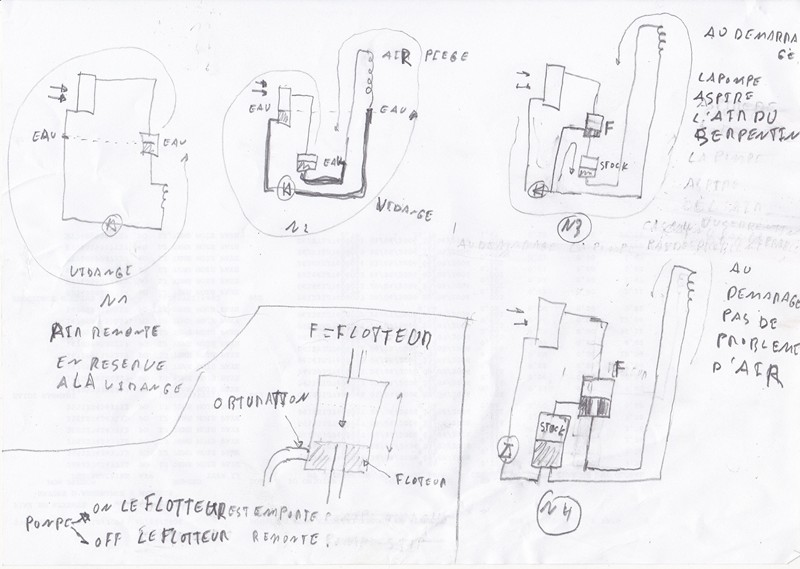 EAU
EAU
VIDANGE
N1
AIR REMONTE
EN RESERVE
A LA VIDANGE
AIR PIEGE
EAU
EAU
EAU
VIDANGE
N2
F
STOCK
N3
AU DEMARRA
GE
LA POMPE
ASPIRE
L'AIR DU
SERPENTIN
F=FLOTTEUR
OBTURATION
FLOTEUR
POMPE
ON LE FLOTTEUR EST EMPORTE.
OFF LE FLOTTEUR REMONTE.
F
STOCK
N4
AU
DEMARAGE
PAS DE
PROBLEME
D'AIR